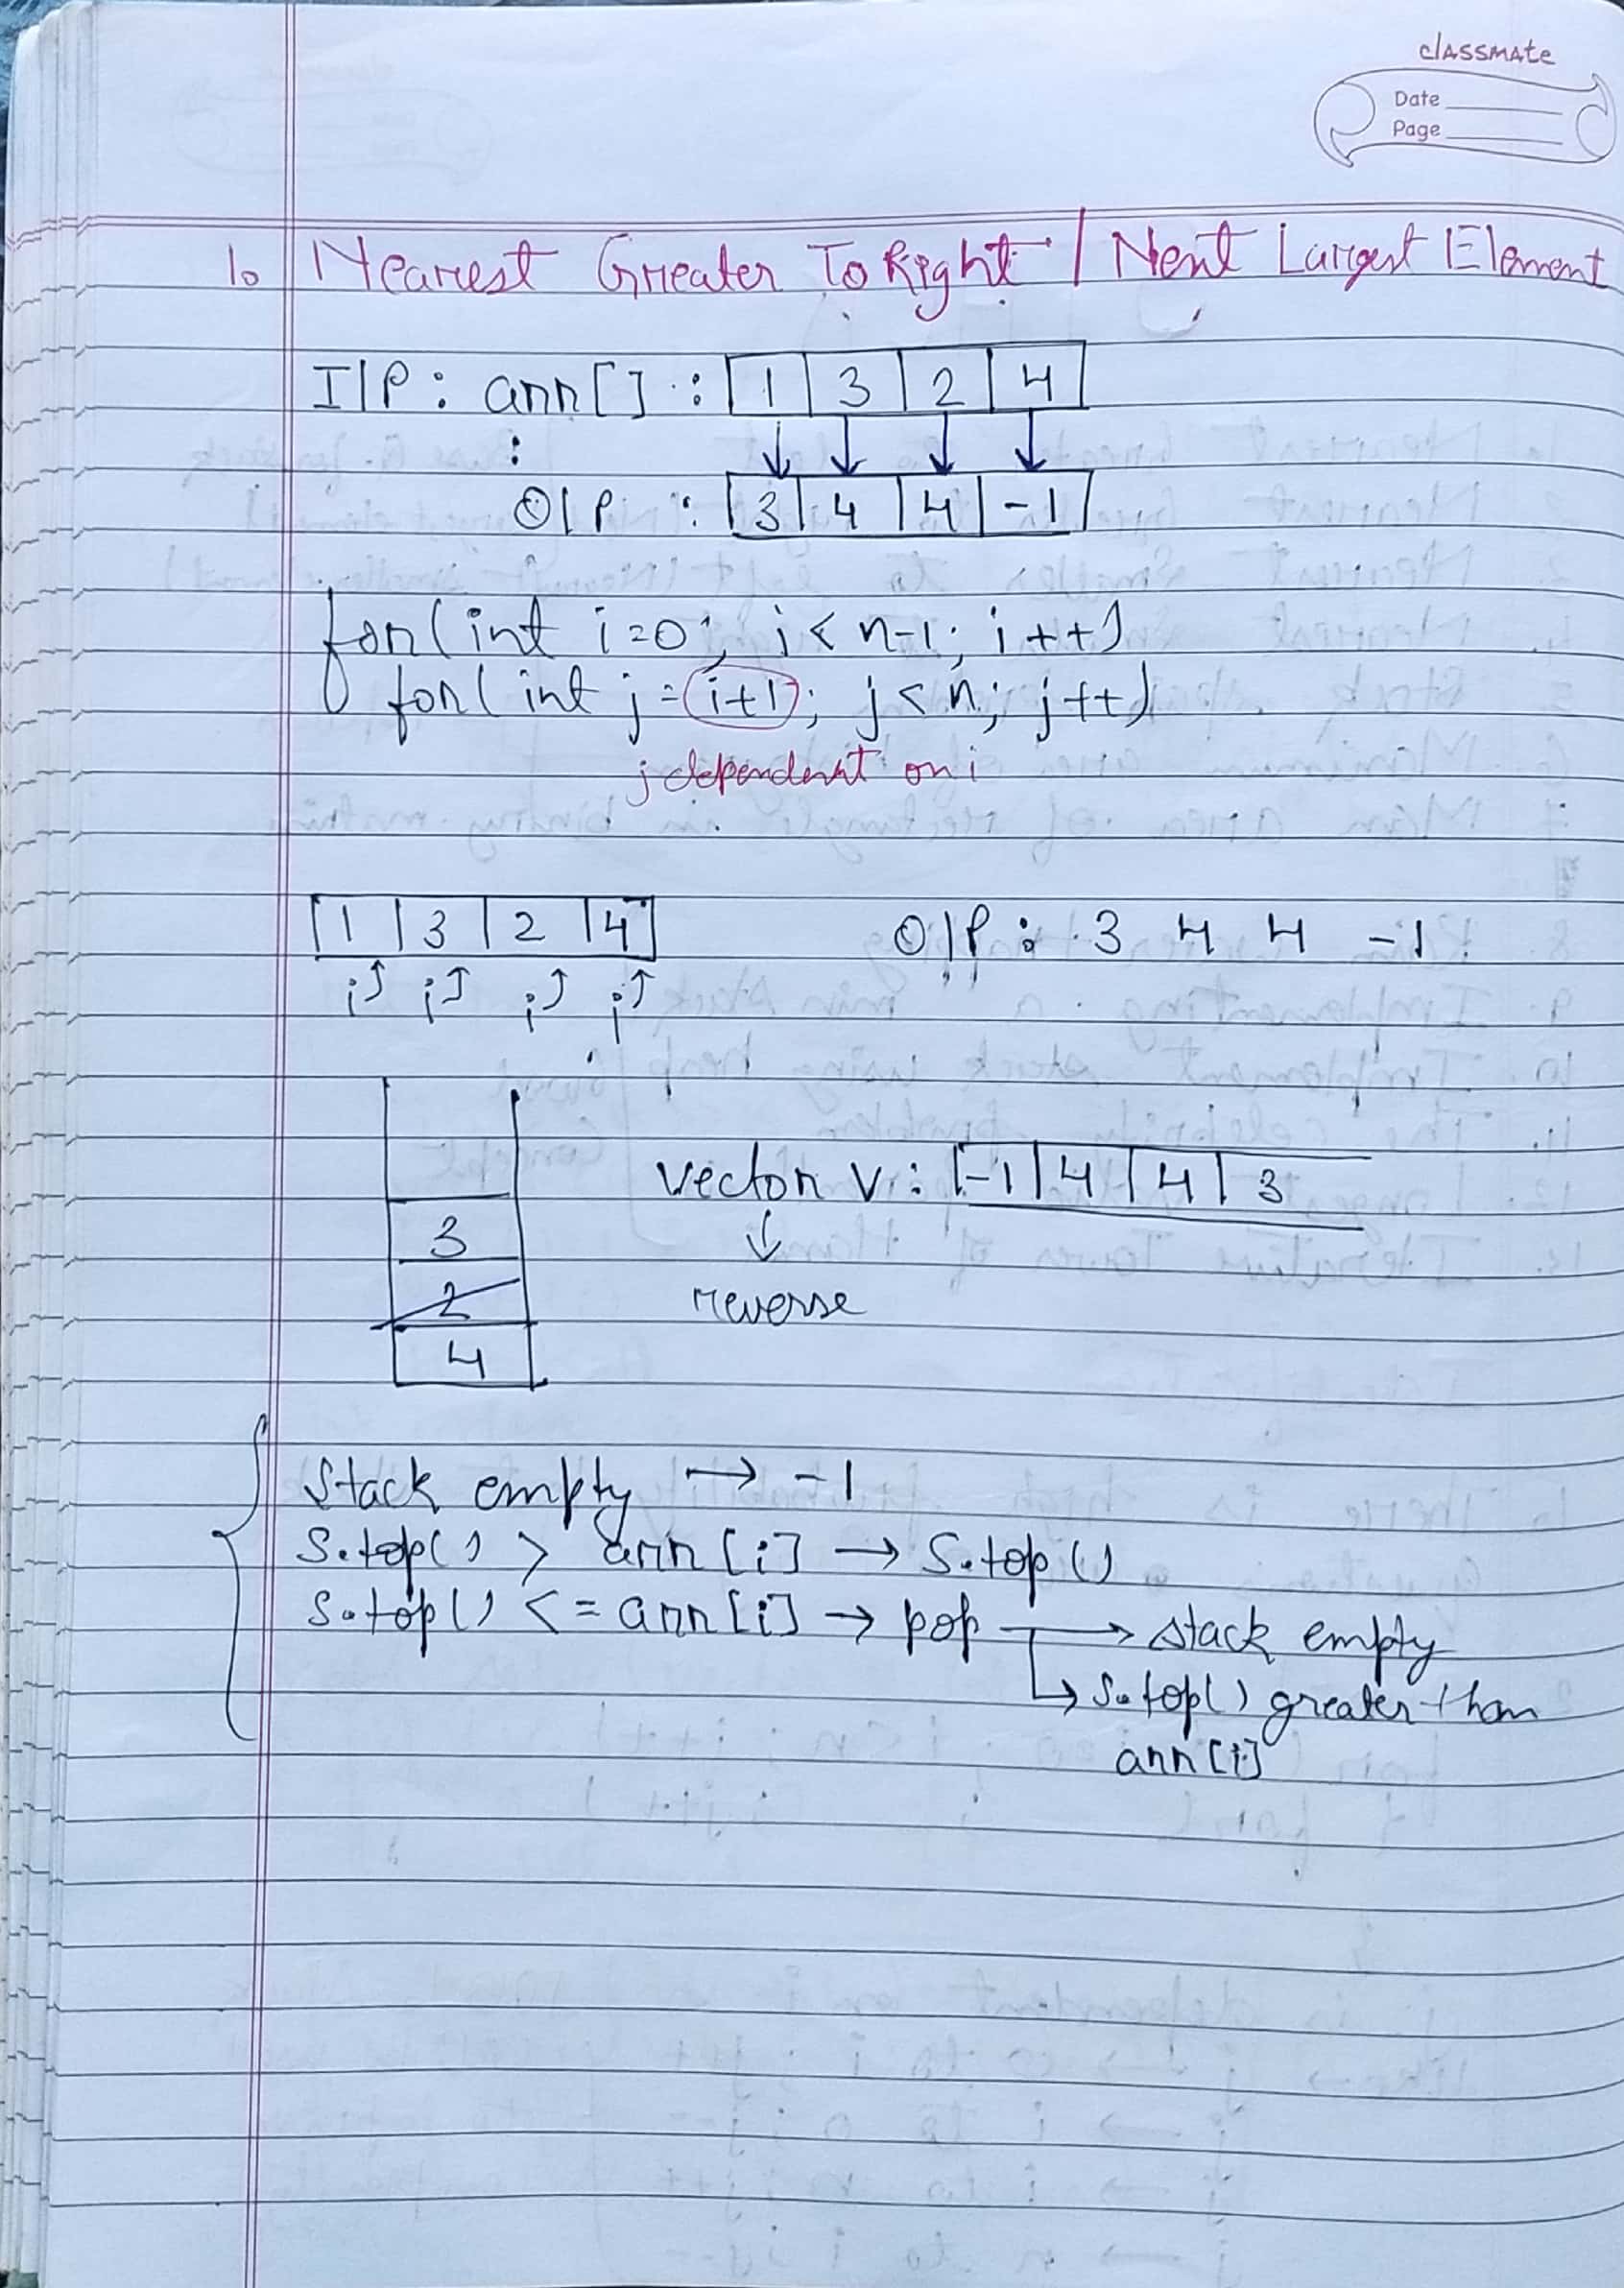 classmate
Date
Page
1. Nearest Greater To Right / Next Largest Element
I/P : arr[] : 1 3 2 4
:
O/P : 3 4 4 -1
for(int i=0; i<n-1; i++)
for(int j=i+1; j<n; j++)
j dependent on i
1 3 2 4 O/P : 3 4 4 -1
i i i i
vector v : -1 4 4 3
3
reverse
2
4
Stack empty → -1
S.top() > arr[i] → S.top()
S.top() <= arr[i] → pop → stack empty
→ S.top() greater than
arr[i]